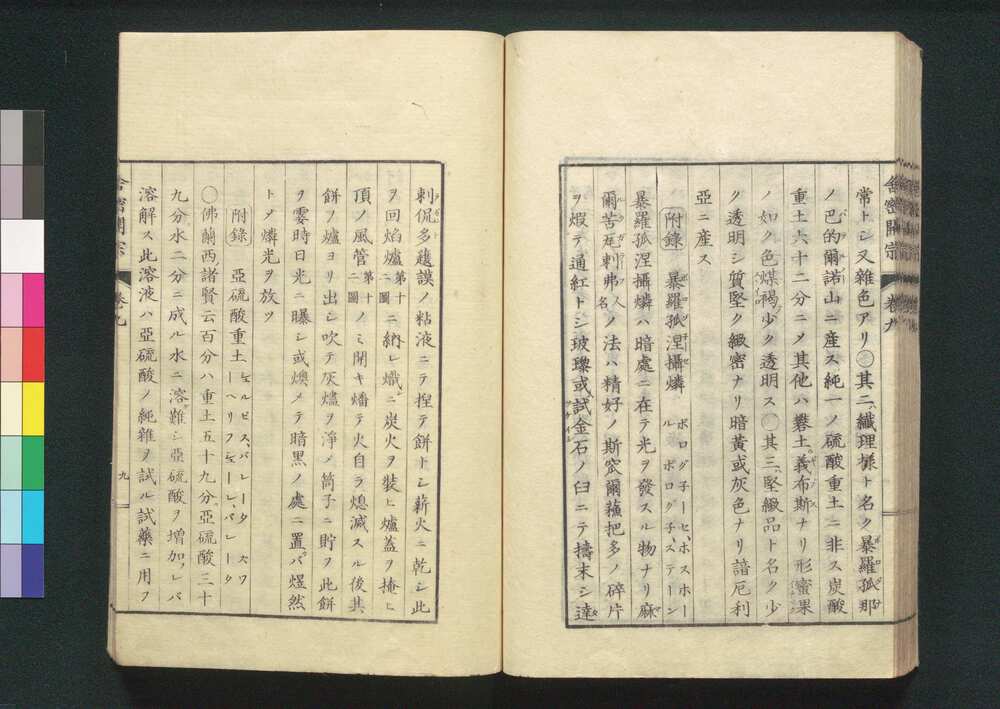 舎密開宗 巻九
常トシ又雑色アリ○其二纎理様ト名ク暴羅孤那
ノ巴的爾諾山ニ産ス純一ノ硫酸重土ニ非ス炭酸
重土六十二分ニメ其他ハ礬土義布斯ナリ形蜜果
ノ如ク色煤褐少ク透明ス○其三堅緻品ト名ク少
ク透明シ質堅ク緻密ナリ暗黄或灰色ナリ諳厄利
亞ニ産ス
附錄 暴羅孤涅攝燐 ボログ子ーセ、ホスホー
ル ボログ子、ステーン
暴羅孤涅攝燐ハ暗處ニ在テ光ヲ發スル物ナリ麻
爾苦刺弗人名ノ法ハ精好ノ斯窊爾蘓把多ノ碎片
ヲ煆テ通紅トシ玻瓈或試金石ノ臼ニテ擣末シ達
刺侃多護謨ノ粘液ニテ揑テ餅トシ薪火ニ乾シ此
ヲ回焰爐第十二圖ニ納レ熾ニ炭火ヲ裝ヒ爐蓋ヲ掩ヒ
頂ノ風管第十二圖ノミ開キ燔テ火自ラ熄滅スル後其
餅ヲ爐ヨリ出シ吹テ灰燼ヲ淨メ筒子ニ貯フ此餅
ヲ霎時日光ニ曝シ或燠メテ暗黒ノ處ニ置バ煜然
トメ燐光ヲ放ツ
附錄 亞硫酸重土 ゼルビス、バレータ スワ
ーヘリフゼーレ、バレータ
○佛蘭西諸賢云百分ハ重土五十九分亞硫酸三十
九分水二分ニ成ル水ニ溶難シ亞硫酸ヲ増加レバ
溶解ス此溶液ハ亞硫酸ノ純雜ヲ試ル試藥ニ用フ
舎密開宗 巻九 九